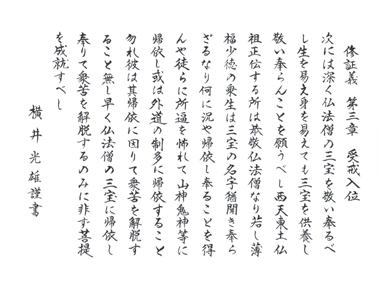 修証義 第三章 受戒入位
次には深く仏法僧の三宝を敬い奉るべ
し生を易え身を易えても三宝を供養し
敬い奉らんことを願うべし西天東土仏
祖正伝する所は恭敬仏法僧なり若し薄
福少徳の衆生は三宝の名字猶聞き奉ら
ざるなり何に況や帰依し奉ることを得
んや徒らに所逼を怖れて山神鬼神等に
帰依し或は外道の制多に帰依すること
勿れ彼は其帰依に因りて衆苦を解脱す
ること無し早く仏法僧の三宝に帰依し
奉りて衆苦を解脱するのみに非ず菩提
を成就すべし
横井光雄謹書